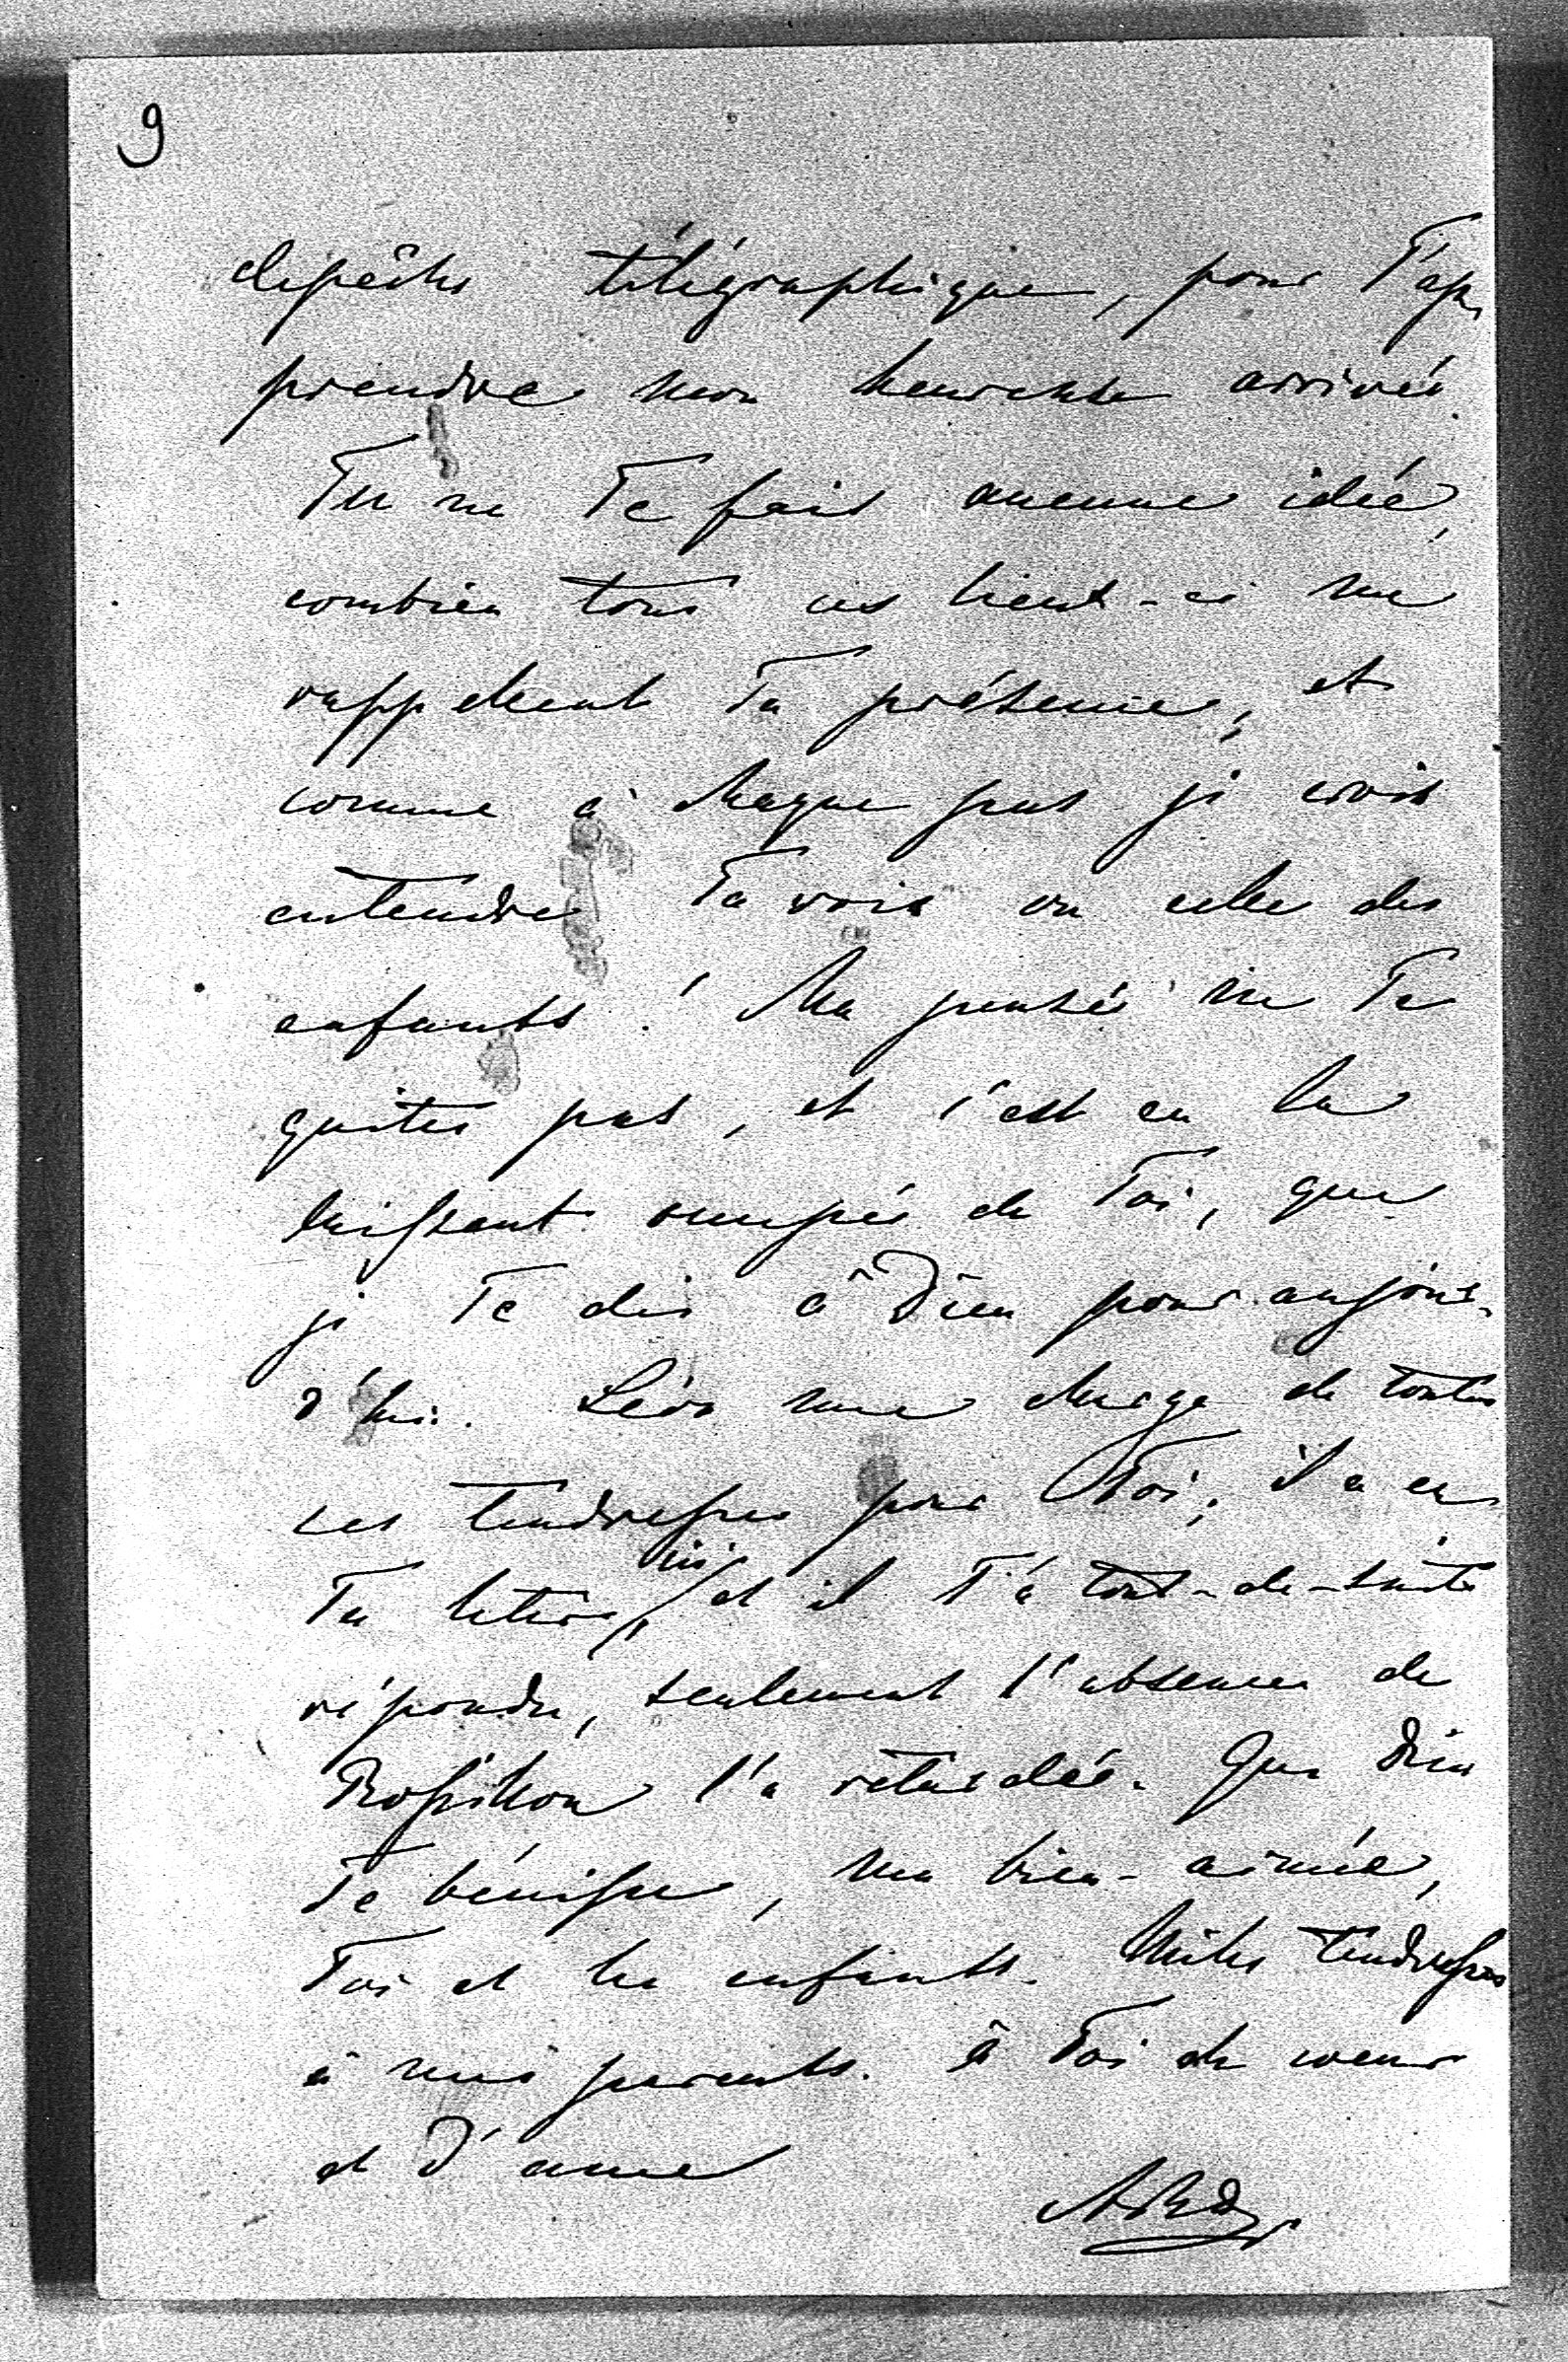 9
depêche télégraphique, pour T'ap-
prendre mon heureuse arrivée.
Tu ne Te fais aucune idée,
combien tous ces lieux-ci me
rappellent Ta présence, et
comme à chaque pas je crois
entendre Ta voix ou celle des
enfants! Ma pensée ne Te
quitte pas, et c'est en la
laissant occupée de Toi, que
je Te dis à Dieu pour aujour-
d'hui. Léon me charge de toutes
ses tendresses pour Toi; il a eu
Ta lettre ici, et il T'a tout-de-suite
répondu, seulement l'absence de
l'a retardée. Que Dieu
Te bénisse, ma bien-aimée,
Toi et les enfants. Milles tendresses
à mes parents. à Toi de coeur
et d'ame